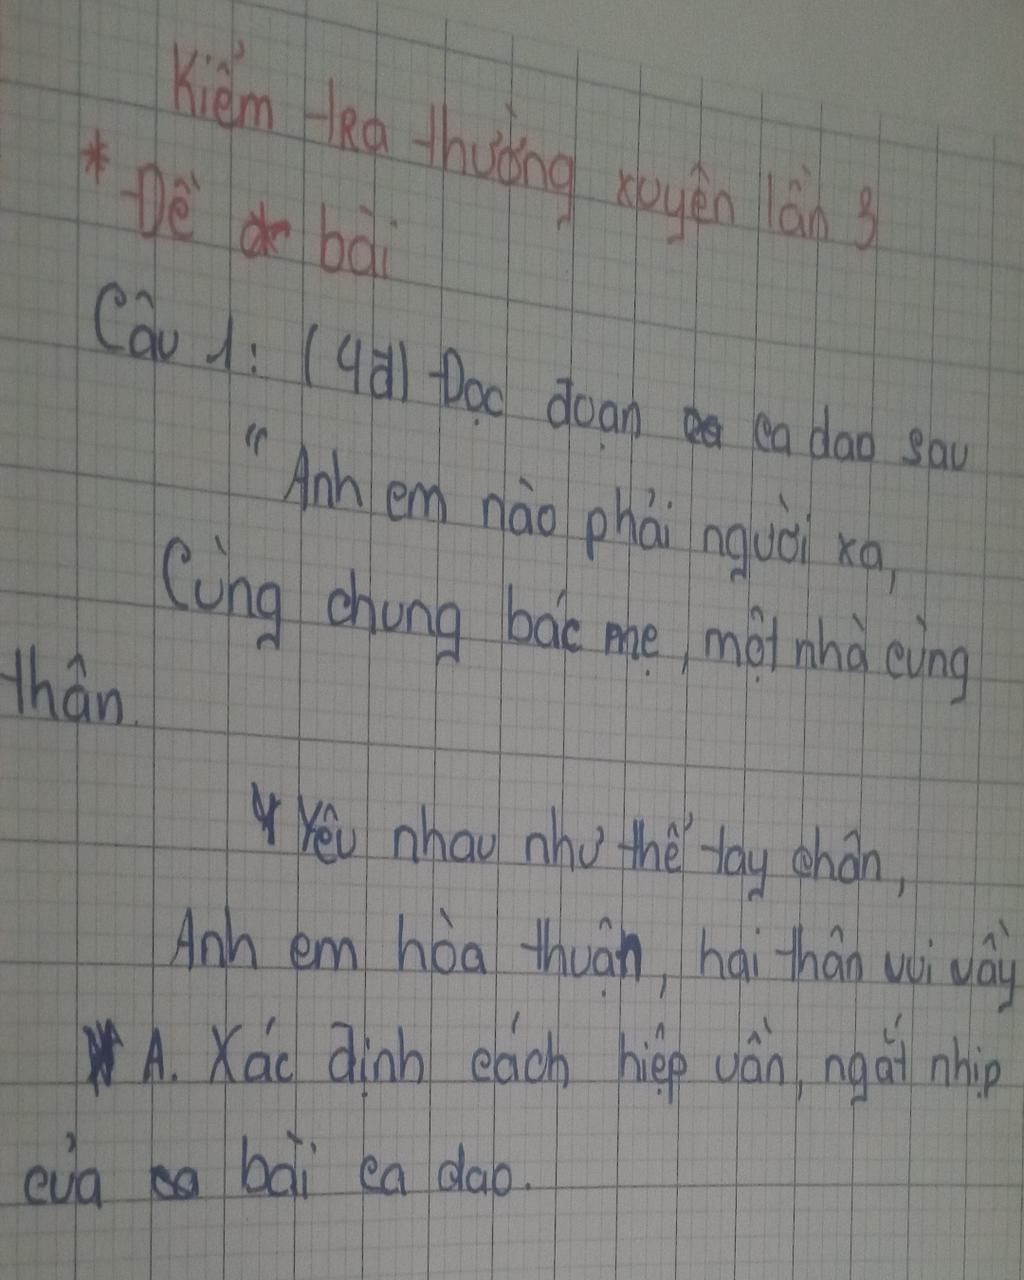 Kiểm tra thường xuyên lần 3
* Đề bài
Câu 1: (4đ) Đọc đoạn ca dao sau
" Anh em nào phải người xa,
Cùng chung bác mẹ, một nhà cùng
thân.
Yêu nhau như thể tay chân,
Anh em hòa thuận, hai thân vui vầy
A. Xác định cách hiệp vần, ngắt nhịp
của bài ca dao.